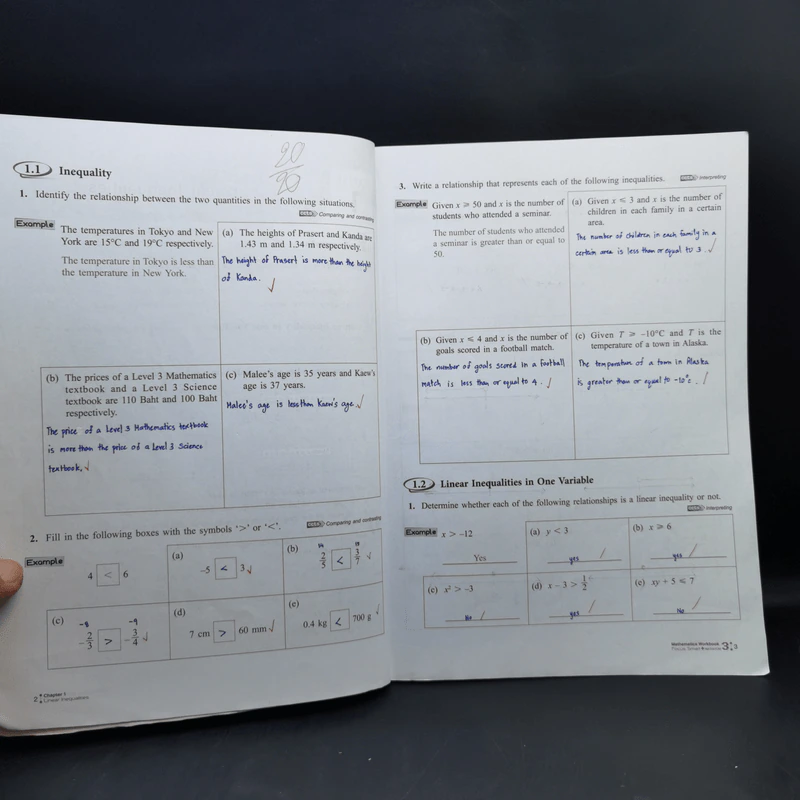 20
20
1.1 Inequality
1. Identify the relationship between the two quantities in the following situations.
Comparing and contrasting
Example
The temperatures in Tokyo and New
York are 15°C and 19°C respectively.
The temperature in Tokyo is less than
the temperature in New York.
(a) The heights of Prasert and Kanda are
1.43 m and 1.34 m respectively.
The height of Prasert is more than the height
of Kanda.
(b) The prices of a Level 3 Mathematics
textbook and a Level 3 Science
textbook are 110 Baht and 100 Baht
respectively.
The price of a Level 3 Mathematics textbook
is more than the price of a Level 3 Science
textbook.
(c) Malee's age is 35 years and Kaew's
age is 37 years.
Malee's age is less than Kaew's age
2. Fill in the following boxes with the symbols '>' or '<'.
Comparing and contrasting
Example
4 < 6
(a)
-5 < 3
(b)
14 15
2/5 < 3/7
(c)
-8 -9
-2/3 > -3/4
(d)
7 cm > 60 mm
(e)
0.4 kg < 700 g
2 Chapter 1
Linear Inequalities
3. Write a relationship that represents each of the following inequalities.
Interpreting
Example
Given x ⩾ 50 and x is the number of
students who attended a seminar.
The number of students who attended
a seminar is greater than or equal to
50.
(a) Given x ⩽ 3 and x is the number of
children in each family in a certain
area.
The number of children in each family in a
certain area is less than or equal to 3
(b) Given x ⩽ 4 and x is the number of
goals scored in a football match.
The number of goals scored in a football
match is less than or equal to 4.
(c) Given T ⩾ -10°C and T is the
temperature of a town in Alaska.
The temperature of a town in Alaska
is greater than or equal to -10°c.
1.2 Linear Inequalities in One Variable
1. Determine whether each of the following relationships is a linear inequality or not.
Interpreting
Example
x > -12
Yes
(a) y < 3
yes
(b) x ⩾ 6
yes
(c) x² > -3
No
(d) x - 3 > 1/2
yes
(e) xy + 5 ⩽ 7
No
Mathematics Workbook
3
3